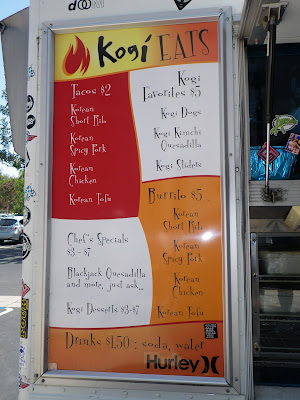 dOOM
Kogi EATS
Tacos $2
Korean
Short Rib
Korean
Spicy Pork
Korean
Chicken
Korean Tofu
Kogi
Favorites $5
Kogi Dogs
Kogi Kimchi
Quesadilla
Kogi Sliders
Burrito $5
Korean
Short Rib
Korean
Spicy Pork
Korean
Chicken
Korean Tofu
Chef's Specials
$3 - $7
Blackjack Quesadilla
and more, just ask...
Kogi Desserts $3-$7
Drinks $1.50 : soda, water
Hurley